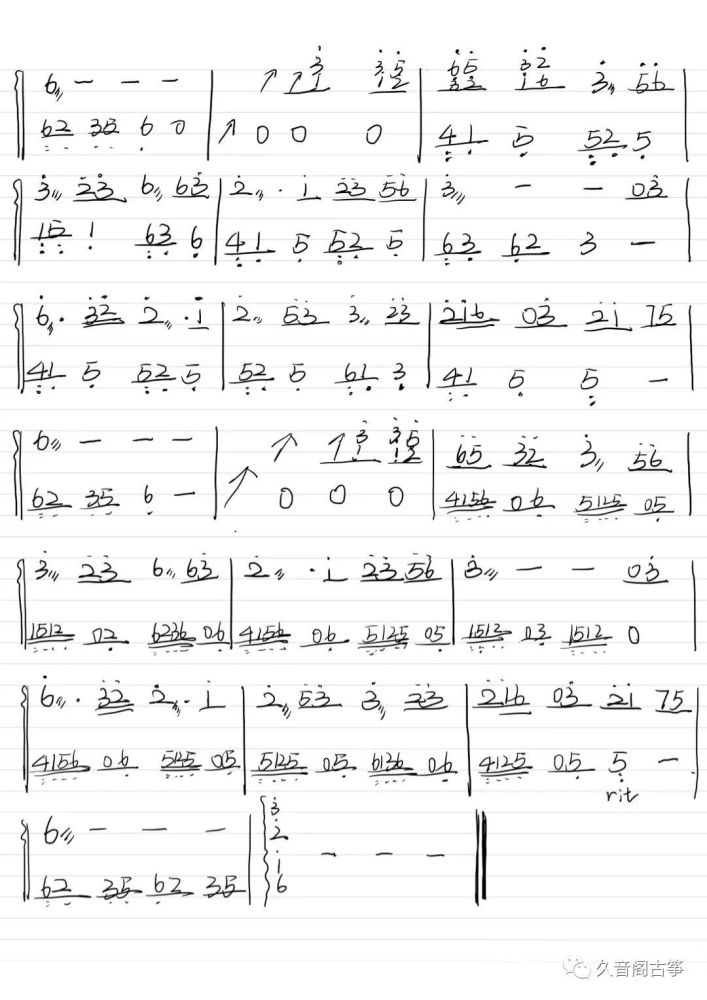 6 - - - | ↗ ↗ 3 1 3 5 1 2 | 6 5 3 2 3 2 1 6 3 5 6 |
6 2 3 5 6 0 | ↗ 0 0 0 | 4 1 5 5 2 5 |
3 2 3 6 6 3 | 2 · 1 2 3 5 6 | 3 - - 0 3 |
1 5 1 6 3 6 | 4 1 5 5 2 5 | 6 3 6 2 3 - |
6 · 3 2 2 · 1 | 2 5 3 3 2 3 | 2 1 6 0 3 2 1 7 5 |
4 1 5 5 2 5 | 5 2 5 6 1 3 | 4 1 5 5 - |
6 - - - | ↗ ↗ 3 1 3 5 1 2 | 6 5 3 2 3 5 6 |
6 2 3 5 6 - | ↗ 0 0 0 | 4 1 5 6 0 6 5 1 2 5 0 5 |
3 2 3 6 6 3 | 2 · 1 2 3 5 6 | 3 - - 0 3 |
1 5 1 2 0 2 6 2 3 6 0 6 | 4 1 5 6 0 6 5 1 2 5 0 5 | 1 5 1 2 0 3 1 5 1 2 0 |
6 · 3 2 2 · 1 | 2 5 3 3 2 3 | 2 1 6 0 3 2 1 7 5 |
4 1 5 6 0 6 5 1 2 5 0 5 | 5 1 2 5 0 5 6 1 3 6 0 6 | 4 1 2 5 0 5 5 - |
rit
6 - - - | 3 2 1 6 - - - ‖
6 2 3 5 6 2 3 5 |
久音阁古筝